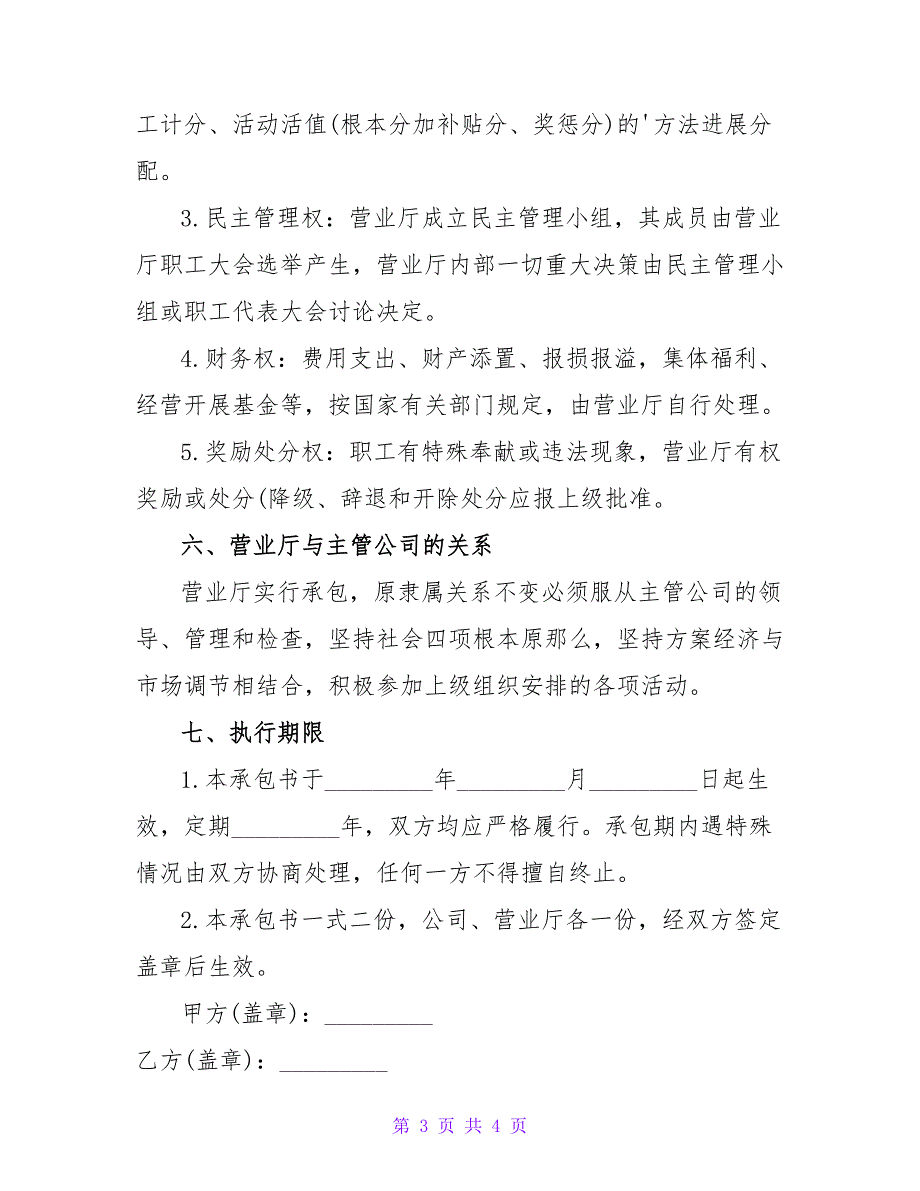 工计分、活动活值(根本分加补贴分、奖惩分)的'方法进展分
配。
3.民主管理权：营业厅成立民主管理小组，其成员由营业
厅职工大会选举产生，营业厅内部一切重大决策由民主管理小
组或职工代表大会讨论决定。
4.财务权：费用支出、财产添置、报损报溢，集体福利、
经营开展基金等，按国家有关部门规定，由营业厅自行处理。
5.奖励处分权：职工有特殊奉献或违法现象，营业厅有权
奖励或处分(降级、辞退和开除处分应报上级批准。
六、营业厅与主管公司的关系
营业厅实行承包，原隶属关系不变必须服从主管公司的领
导、管理和检查，坚持社会四项根本原那么，坚持方案经济与
市场调节相结合，积极参加上级组织安排的各项活动。
七、执行期限
1.本承包书于_________年_________月_________日起生
效，定期_________年，双方均应严格履行。承包期内遇特殊
情况由双方协商处理，任何一方不得擅自终止。
2.本承包书一式二份，公司、营业厅各一份，经双方签定
盖章后生效。
甲方(盖章)：_________
乙方(盖章)：_________
第 3 页 共 4 页